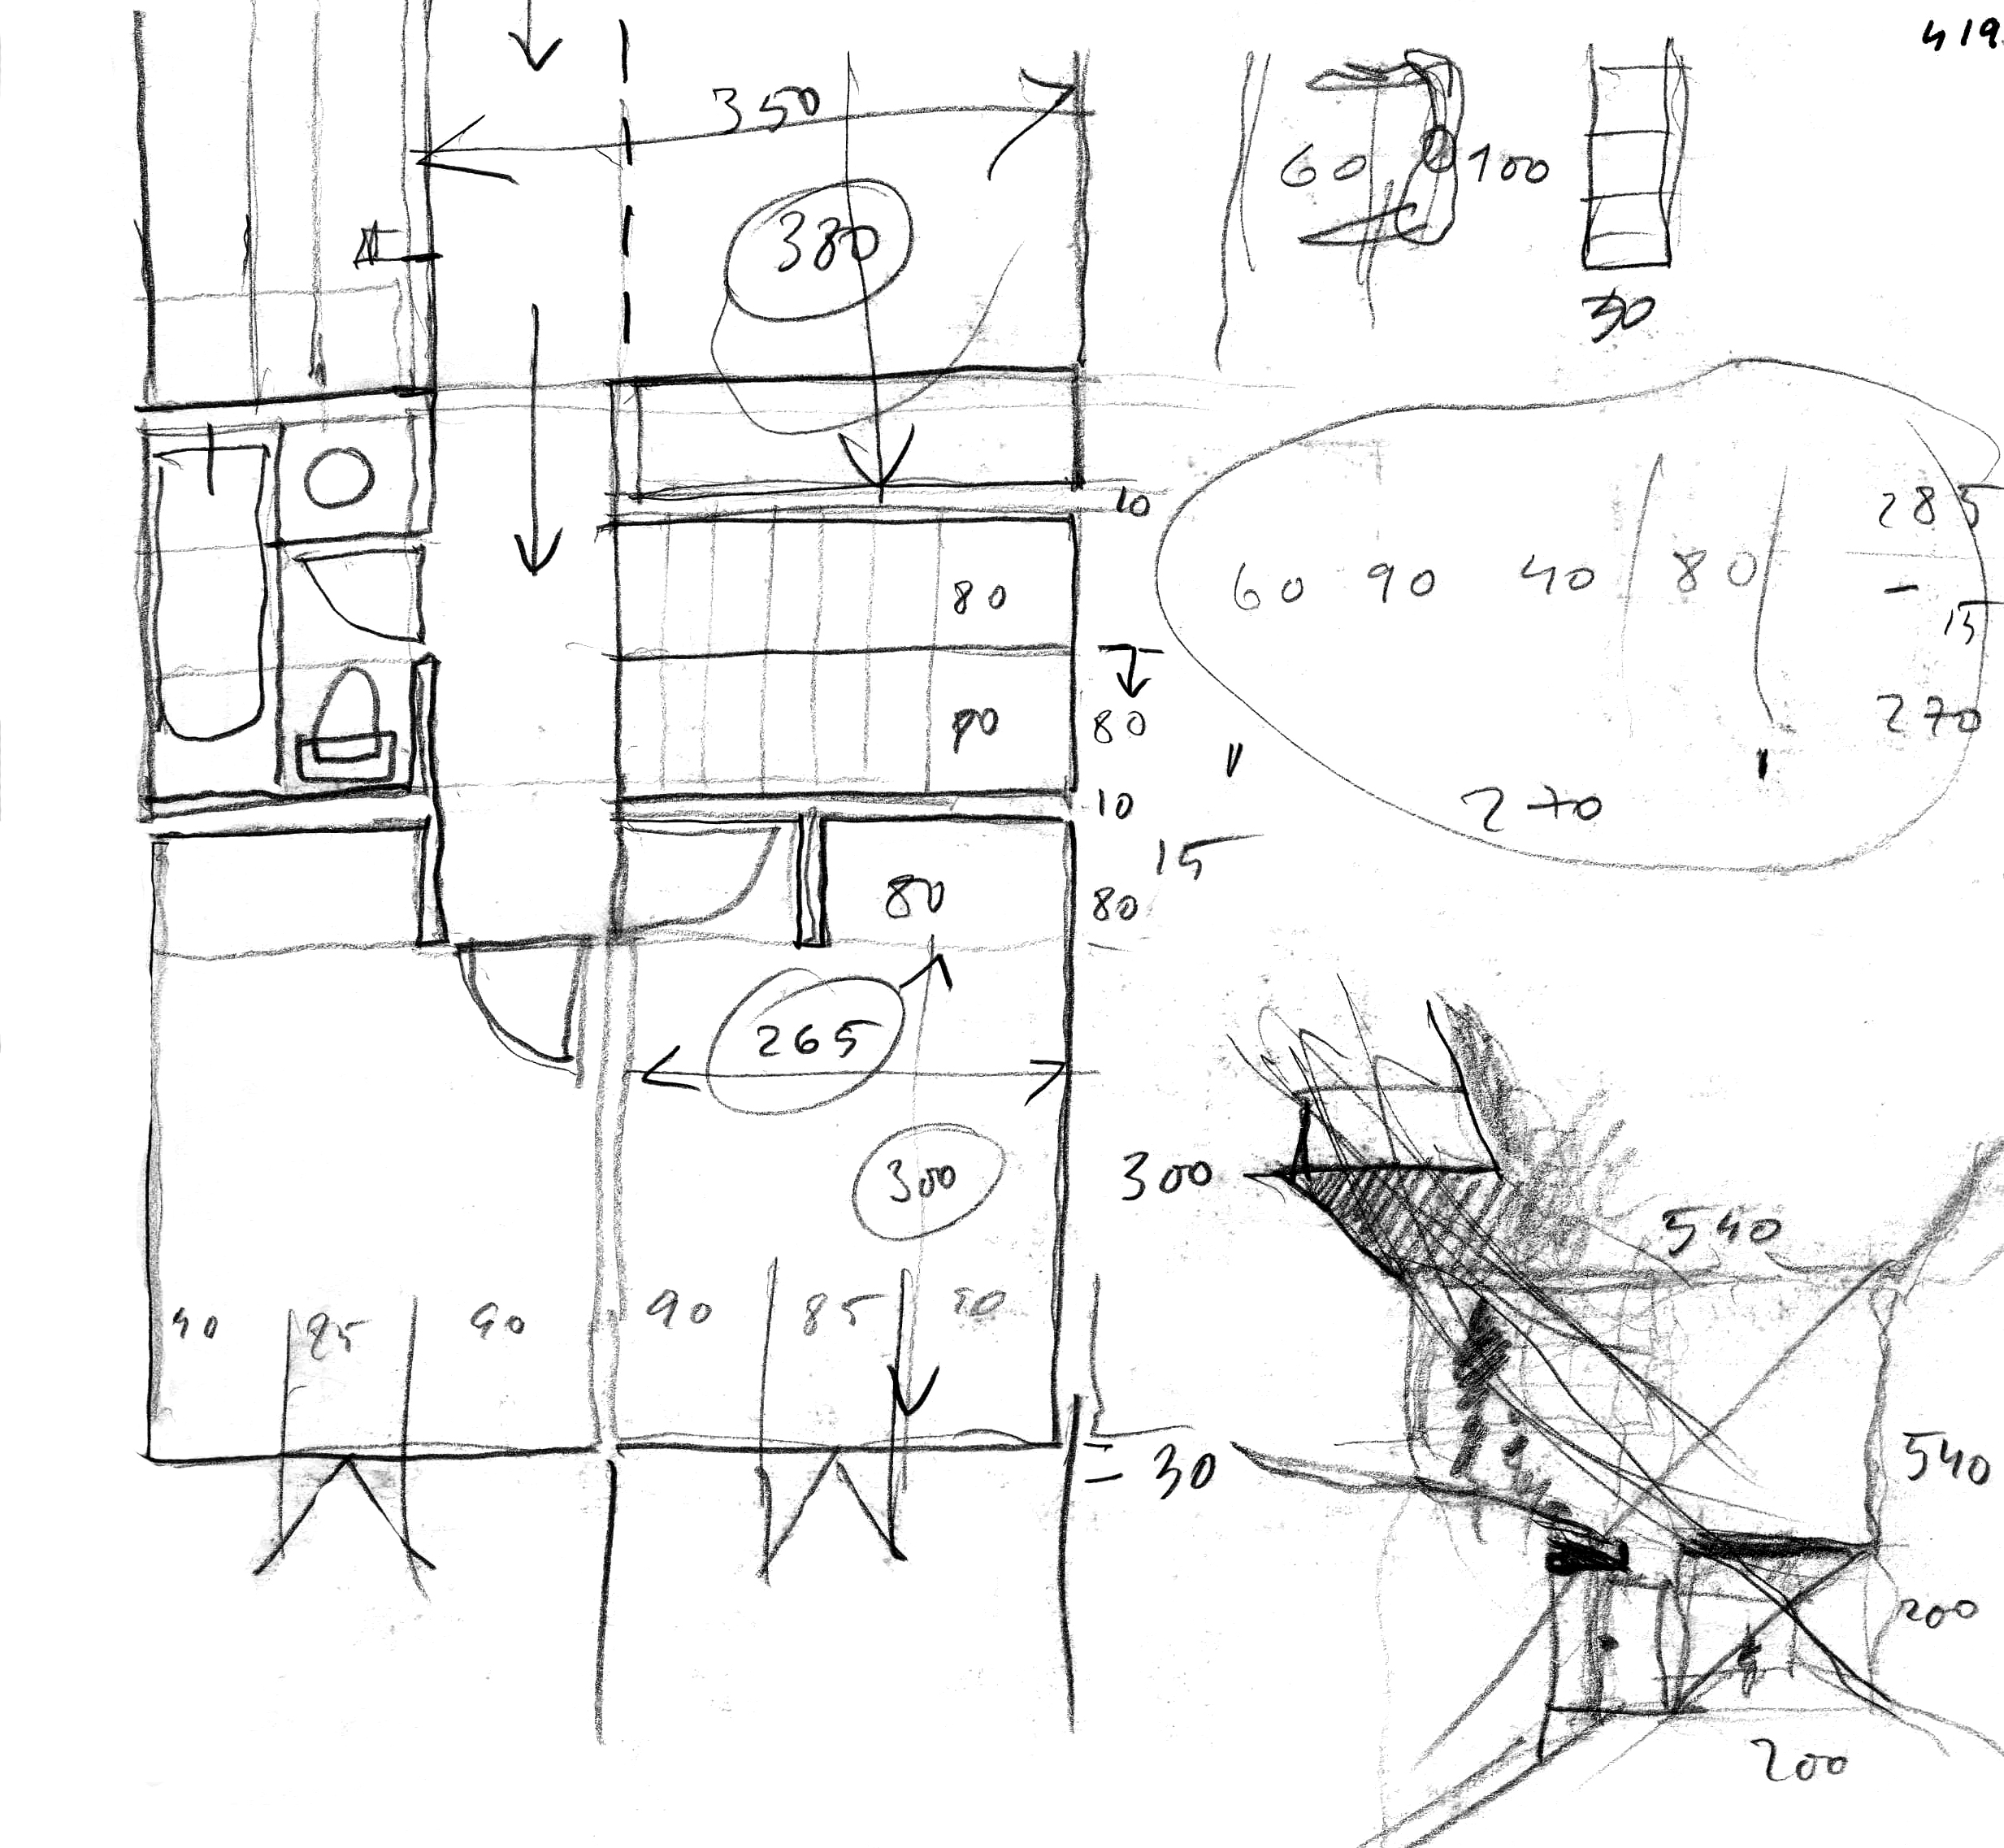 419
350
60 100
380
30
10
285
60 90 40 80
-
15
80
80
270
270
10
15
80
80
265
300
300
540
90 85
90
- 30
540
200
200